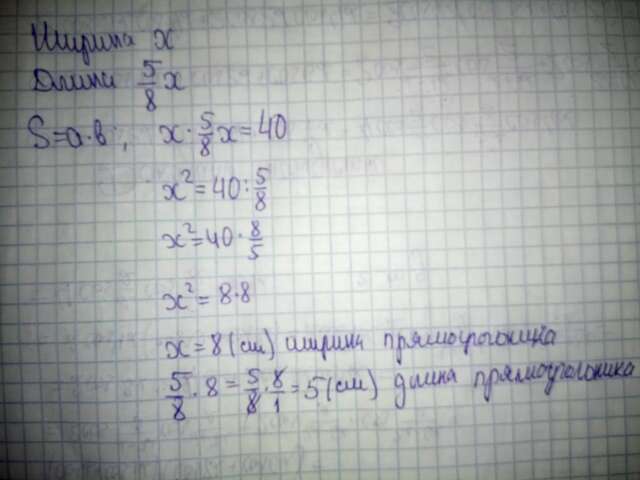 Ширина x
Длина 5/8 x
S=a·b; x · 5/8 x = 40
x² = 40 : 5/8
x² = 40 · 8/5
x² = 8·8
x = 8 (см) ширина прямоугольника
5/8 · 8 = 5/8 · 8/1 = 5 (см) длина прямоугольника